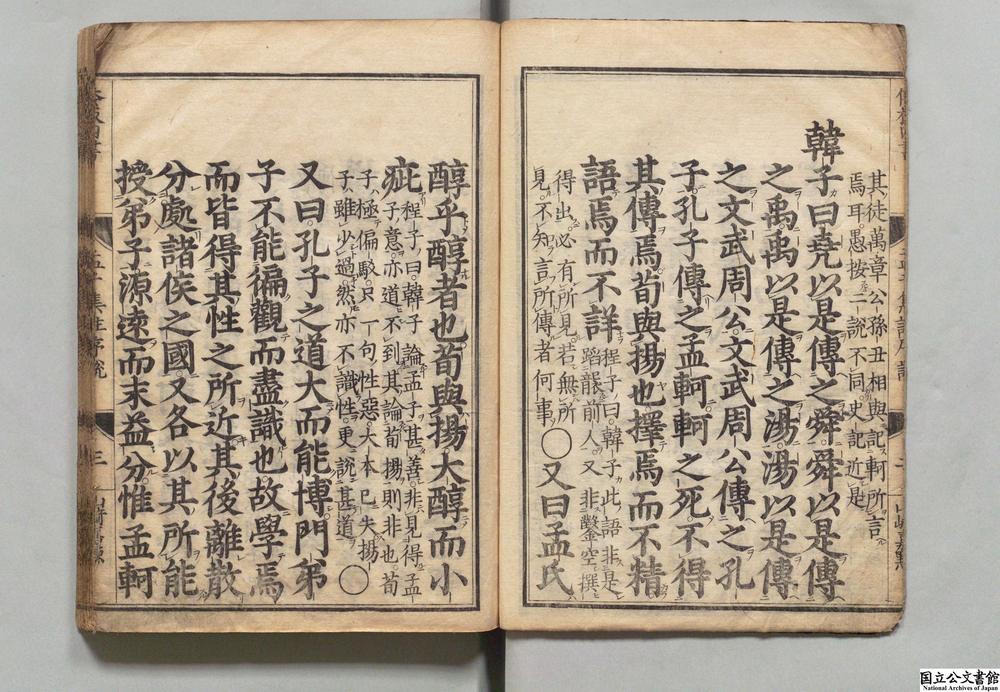 其徒萬章公孫丑相與記軻所言
焉耳愚按二說不同史記近是
韓子曰堯以是傳之舜舜以是傳
之禹禹以是傳之湯湯以是傳
之文武周公文武周公傳之孔
子孔子傳之孟軻軻之死不得
其傳焉荀與揚也擇焉而不精
語焉而不詳
程子曰韓子此語非是
蹈襲前人又非鑿空撰
得出必有所見若無所
見不知言所傳者何事
○又曰孟氏
醇乎醇者也荀與揚大醇而小
疵
程子曰韓子論孟子甚善非見得孟
子意亦道不到其論荀揚則非也荀
子極偏駁只一句性惡大本已失揚
子雖少過然亦不識性更說甚道
○
又曰孔子之道大而能博門弟
子不能徧觀而盡識也故學焉
而皆得其性之所近其後離散
分處諸侯之國又各以其所能
授弟子源遠而末益分惟孟軻
集註序說
三
国立公文書館
National Archives of Japan